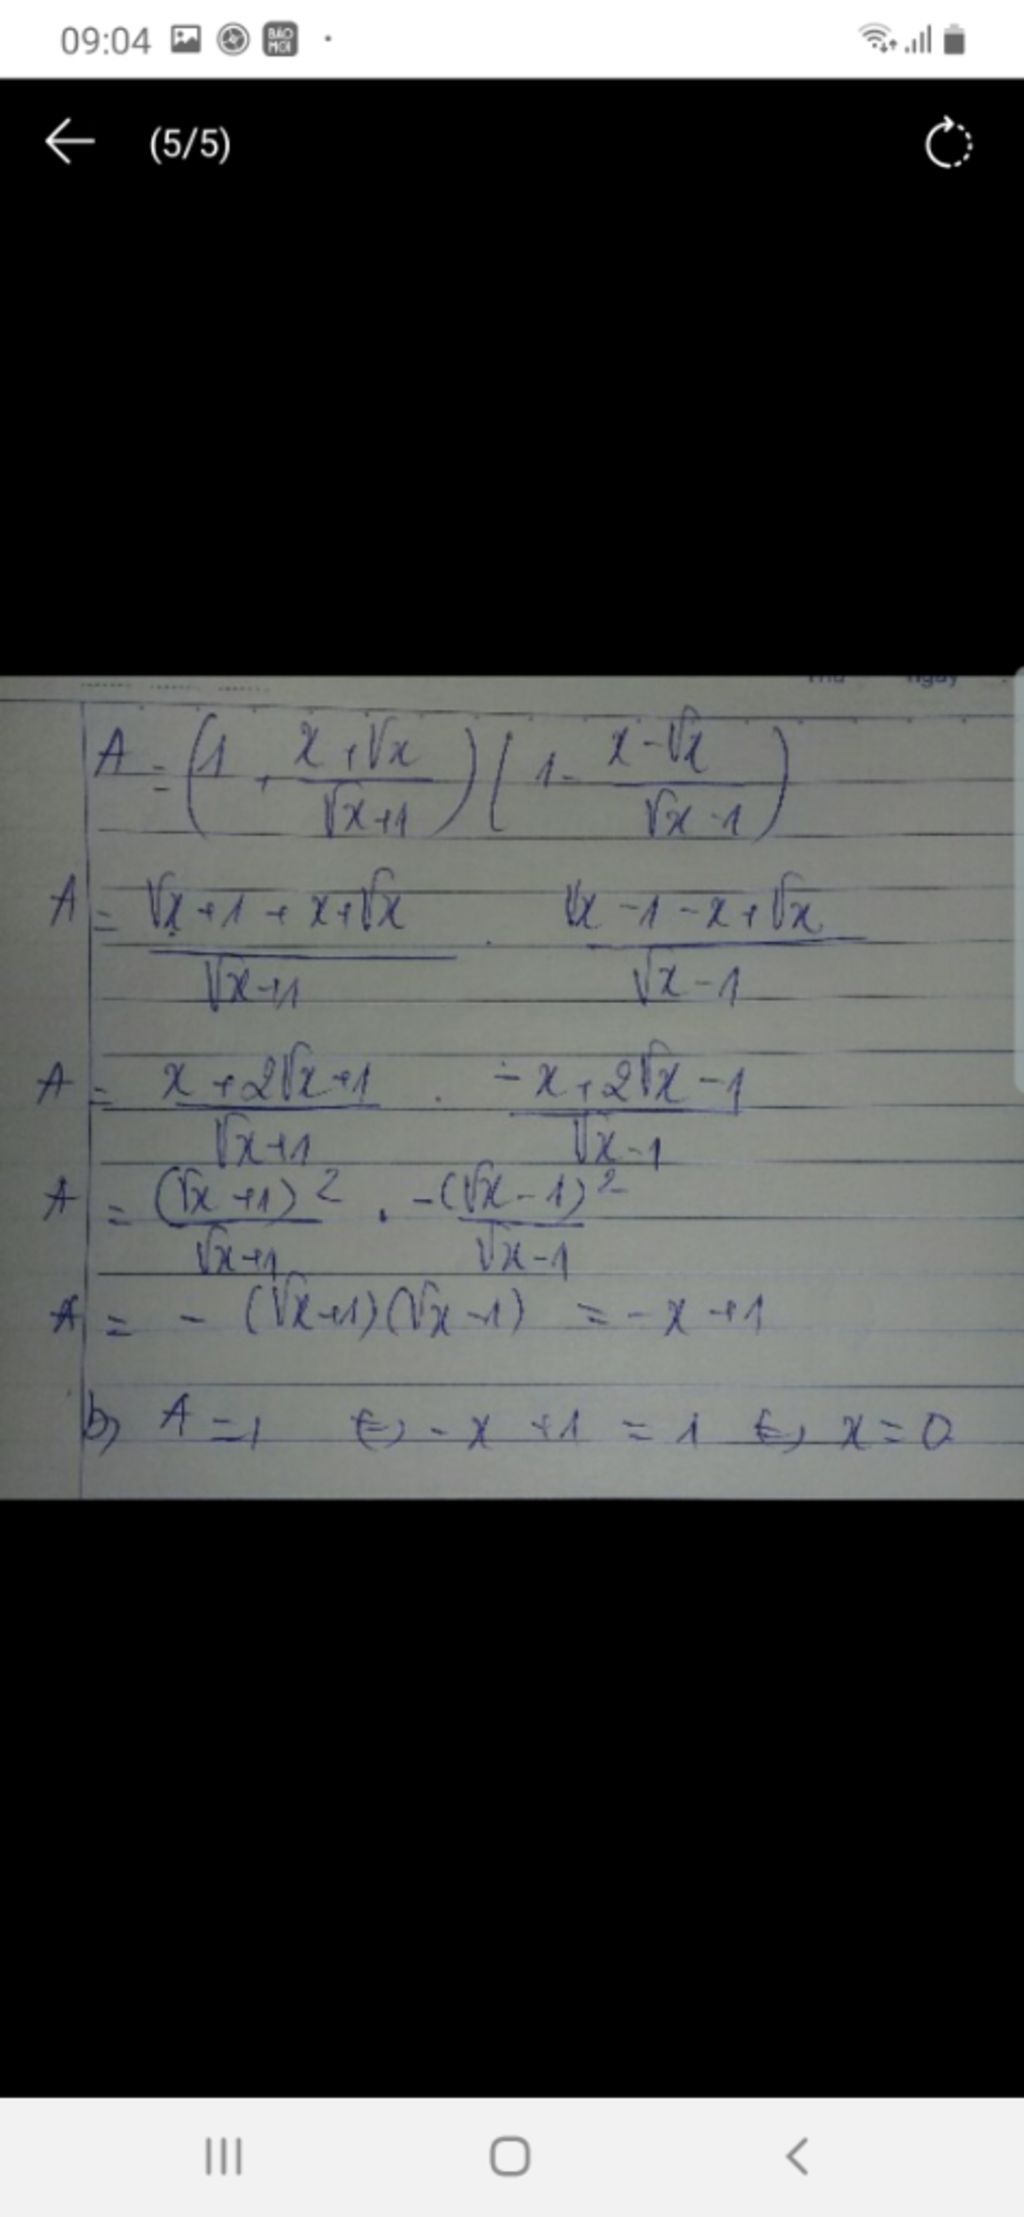 09:04 BÁO MỚI
(5/5)
Thứ ngày
A = (1 + x+√x / √x+1) (1 - x-√x / √x-1)
A = √x+1+x+√x / √x+1 . √x-1-x+√x / √x-1
A = x+2√x+1 / √x+1 . -x+2√x-1 / √x-1
A = (√x+1)² / √x+1 . -(√x-1)² / √x-1
A = - (√x+1)(√x-1) = -x+1
b) A=1 (=) -x+1 = 1 (=) x=0